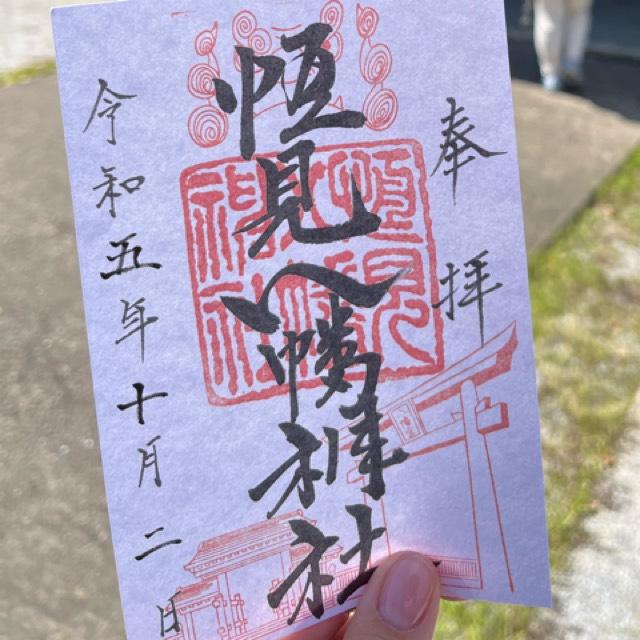 奉拝
恒見八幡神社
令和五年十月二日